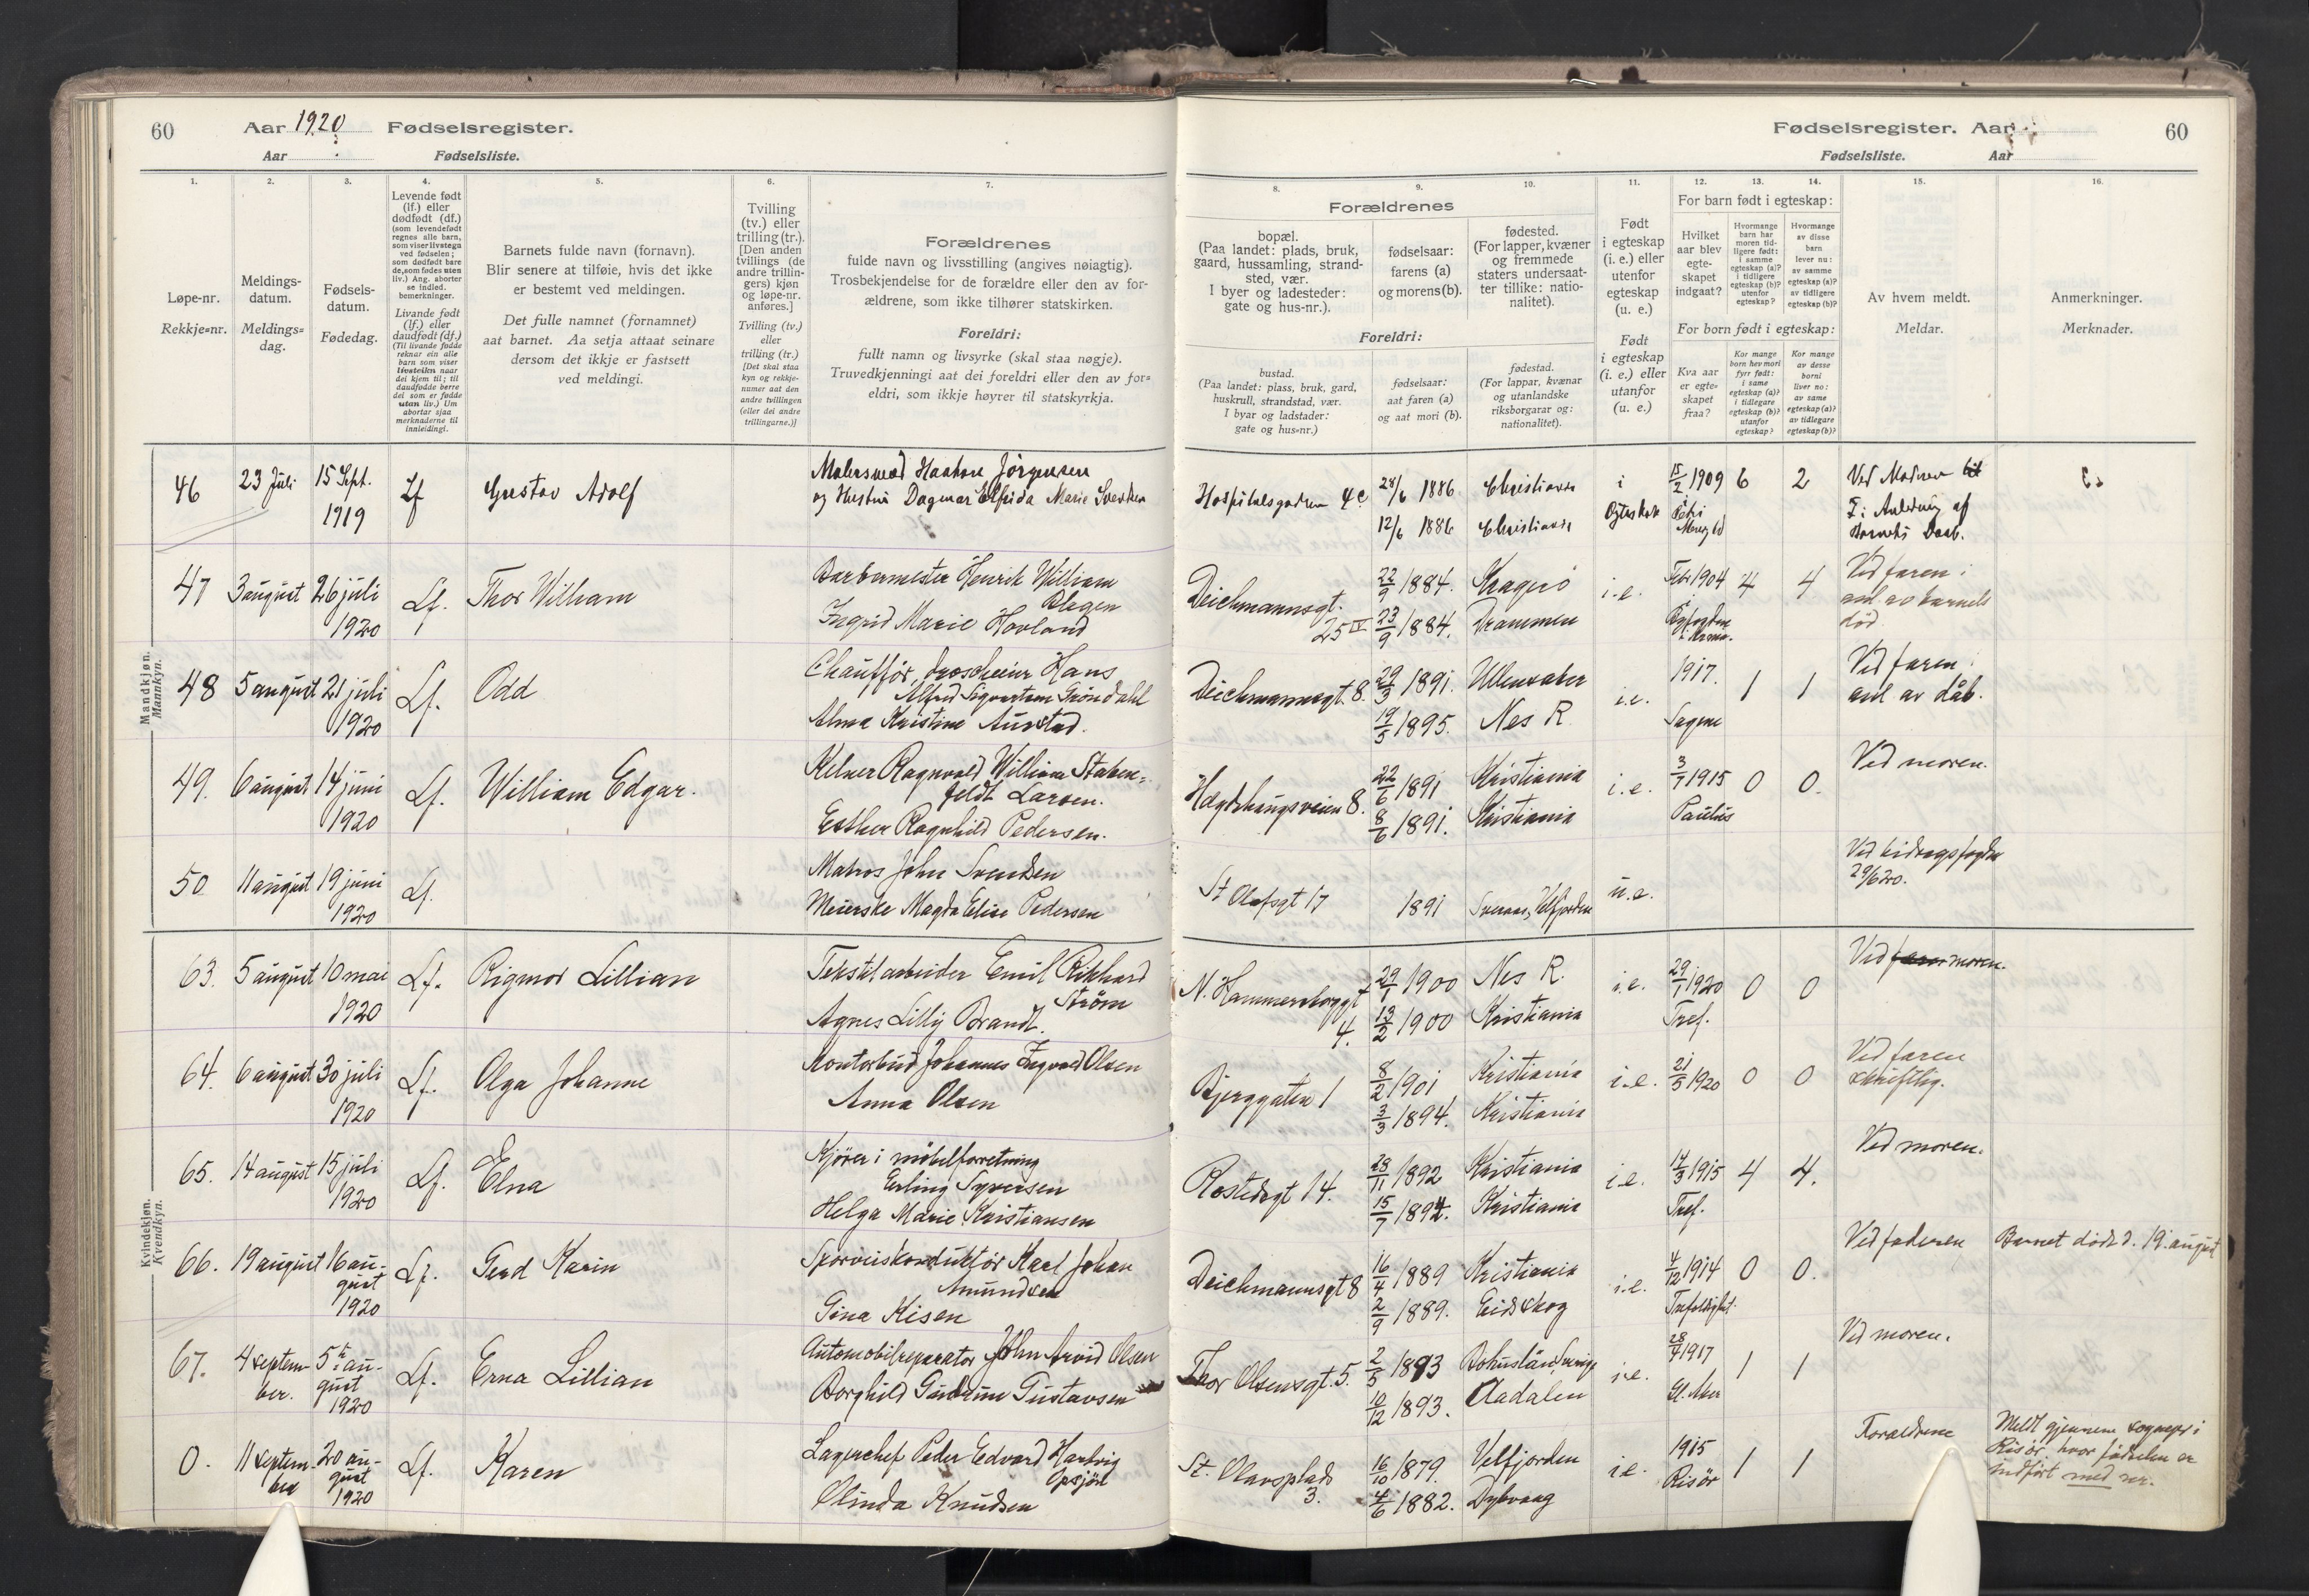 60
Aar 1920 Fødselsregister.
Aar
Fødselsliste.
Fødselsregister. Aar
60
Fødselsliste.
Aar
1.
Løpe-nr.
Rekkje=nr.
2.
Meldings-
datum.
Meldings=
dag.
3.
Fødsels-
datum.
Fødedag.
4.
Levende født
(lf.) eller
dødfødt (df.)
(som levendefødt
regnes alle barn,
som viser livstegn
ved fødselen;
som dødfødt bare
de, som fødes uten
liv.) Ang. aborter
se indled.
bemerkninger.
Livande født
(lf.) eller
daudfødt (df.)
(Til livande fødde
reknar ein alle
barn som viser
livsteikn naar
dei kjem til; til
daudfødde berre
dei som er fødde
utan liv.) Um
abortar sjaa
merknaderne til
innleidingi.
5.
Barnets fulde navn (fornavn).
Blir senere at tilføie, hvis det ikke
er bestemt ved meldingen.
Det fulle namnet (fornamnet)
aat barnet. Aa setja attaat seinare
dersom det ikkje er fastsett
ved meldingi.
6.
Tvilling
(tv.) eller
trilling (tr.).
[Den anden
tvillings (de
andre trillin-
gers) kjøn
og løpe-nr.
anføres.]
Tvilling (tv.)
eller
trilling (tr.)
[Det skal staa
kyn og rekkje-
numer aat den
andre tvillingen
(eller dei andre
trillingarne.)]
7.
Forældrenes
fulde navn og livsstilling (angives nøiagtig).
Trosbekjendelse for de forældre eller den av for-
ældrene, som ikke tilhører statskirken.
Foreldri:
fullt namn og livsyrke (skal staa nøgje).
Truvedkjenningi aat dei foreldri eller den av for=
eldri, som ikkje høyrer til statskyrkja.
8.
Forældrenes
bopæl.
(Paa landet: plads, bruk,
gaard, hussamling, strand-
sted, vær.
I byer og ladesteder:
gate og hus-nr.).
Foreldri:
bustad.
(Paa landet: plass, bruk, gard,
huskrull, strandstad, vær.
I byar og ladstader:
gate og hus=nr.)
9.
fødselsaar:
farens (a)
og morens (b).
fødselsaar:
aat faren (a)
og aat mori (b).
10.
fødested.
(For lapper, kvæner
og fremmede
staters undersaat-
ter tillike: natio-
nalitet).
fødestad.
(For lappar, kvænar
og utanlandske
riksborgarar og:
nationalitet).
11.
Født
i egteskap
(i. e.) eller
utenfor
egteskap
(u. e.)
Født
i egteskap
(i. e.) eller
utanfor
(u. e.)
12.
13.
14.
For barn født i egteskap:
Hvilket
aar blev
egte-
skapet
indgaat?
Hvormange
barn har
moren tid-
ligere født:
i samme
egteskap (a)?
i tidligere
egteskap (b)?
utenfor
egteskap?
Hvormange
av disse
barn
lever nu:
av samme
egteskap (a)?
av tidligere
egteskap (b)?
For born født i egteskap:
Kva aar
er egte-
skapet
fraa?
Kor mange
born hev mori
fyrr født:
i same
egteskap (a)?
i tidlegare
egteskap (b)?
utanfor
egteskap?
Kor mange
av desse
borni
liver no:
av same
egteskap (a)?
av tidlegare
egteskap (b)?
15.
Av hvem meldt.
Meldar.
16.
Anmerkninger.
Merknader.
Mandkjøn.
Mannkyn.
46 23 Juli 15 Sept. 1919 Lf Gustav Adolf
Malersvend Haakon Jørgensen
og Hustru Dagmar Elfrida Marie
Hospitalsgaden 4c 28/6 1886 Christiania
12/6 1886 Christiania
i Egteskab 15/2 1909 6 2
Ved Moderen
I Anledning af
Barnets Daab.
47 3 august 26 juli 1920 Lf. Thor William
Barbermester Henrik William
Hagen
Ingrid Marie Hovland
Deichmannsgt. 25 IV 22/9 1884. Kragerö
23/9 1884. Drammen
i.e. Febr 1904 4 4
Ved faren i
anl. av barnets
död
48 5 august 21 juli 1920 Lf. Odd
Chaufför, Hans
Alfred Sigvartsen Gröndahl
Alma Kristine Aurstad.
Deichmannsgt. 8. 29/3 1891. Ullensaker
19/5 1895. Nes R.
i.e. 1917. Sagene 1 1
Ved faren i
anl av dåb.
49. 6 august 14 juni 1920 Lf. William Edgar.
Kelner Ragnvald William Staben=
feldt Larsen.
Esther Ragnhild Pedersen.
Hægdehaugsveien 8. 22/6 1891 Kristiania
8/6 1891. Kristiania
i.e. 3/7 1915 Paulus 0 0.
Ved moren.
50 11 august 19 juni 1920 Lf.
Matros John Svendsen
Meierske Magda Elise Pedersen
St Olafsgt 17 1891 Velfjorden
u.e.
Ved bidragsfogden
29/6 20.
Kvindekjøn.
Kvendkyn.
63. 5 august 10 mai 1920 Lf. Rigmor Lillian
Tekstilarbeider Emil Rikhard
Ström
Agnes Lilly Brandt.
N. Hammersborggt 4. 29/1 1900 Nes R.
13/2 1900 Kristiania
i.e. 29/1 1920 Tref. 0 0
Ved faren moren.
64. 6 august 30 juli 1920 Lf. Olga Johanne
Kontorbud Johannes Ingvald Olsen
Anna Olsen
Bjerggaten 1 8/2 1901 Kristiania
3/3 1894. Kristiania
i.e. 21/5 1920 0 0
Ved faren
skriftlig.
65. 14 august 15 juli 1920 Lf. Elna
Kjörer i möbelforretning
Erling Syversen
Helga Marie Kristiansen
Rostedsgt 14. 28/11 1892 Kristiania
15/7 1894. Kristiania
i.e. 14/3 1915 Tref. 4 4.
Ved moren.
66. 19 august 16 au-
gust 1920 Lf. Gerd Karin
Sporveiskonduktör Karl Johan
Amundsen
Gina Kisen
Deichmannsgt 8 16/4 1889 Kristiania
2/9 1889. Eidskog
i.e. 4/12 1914 Trefoldighet. 0 0.
Ved faderen
Barnet döde d. 19. august
67. 4 septem-
ber. 5te au-
gust 1920 Lf. Erna Lillian
Automobilreparatør John Arvid Olsen
Borghild Gudrun Gustavsen
Thor Olsensgt. 5. 2/5 1893 Bohuslän, Sverige
10/12 1893. Aadalen
i.e. 28/7 1917 Gl. Aker 1 1
Ved moren.
0. 11 septem-
ber 20 au-
gust 1920 Lf. Karen
Lagerchef Peder Edvard Hartvig
Opsjön
Olinda Knudsen
St. Olavsplads 3. 16/10 1879. Velfjorden
4/6 1882. Dybvaag
i.e. 1915 Risör 1 1
Forældrene
Meldt gjennem sogneps i
Risör hvor fødselen er
indfört med nr.